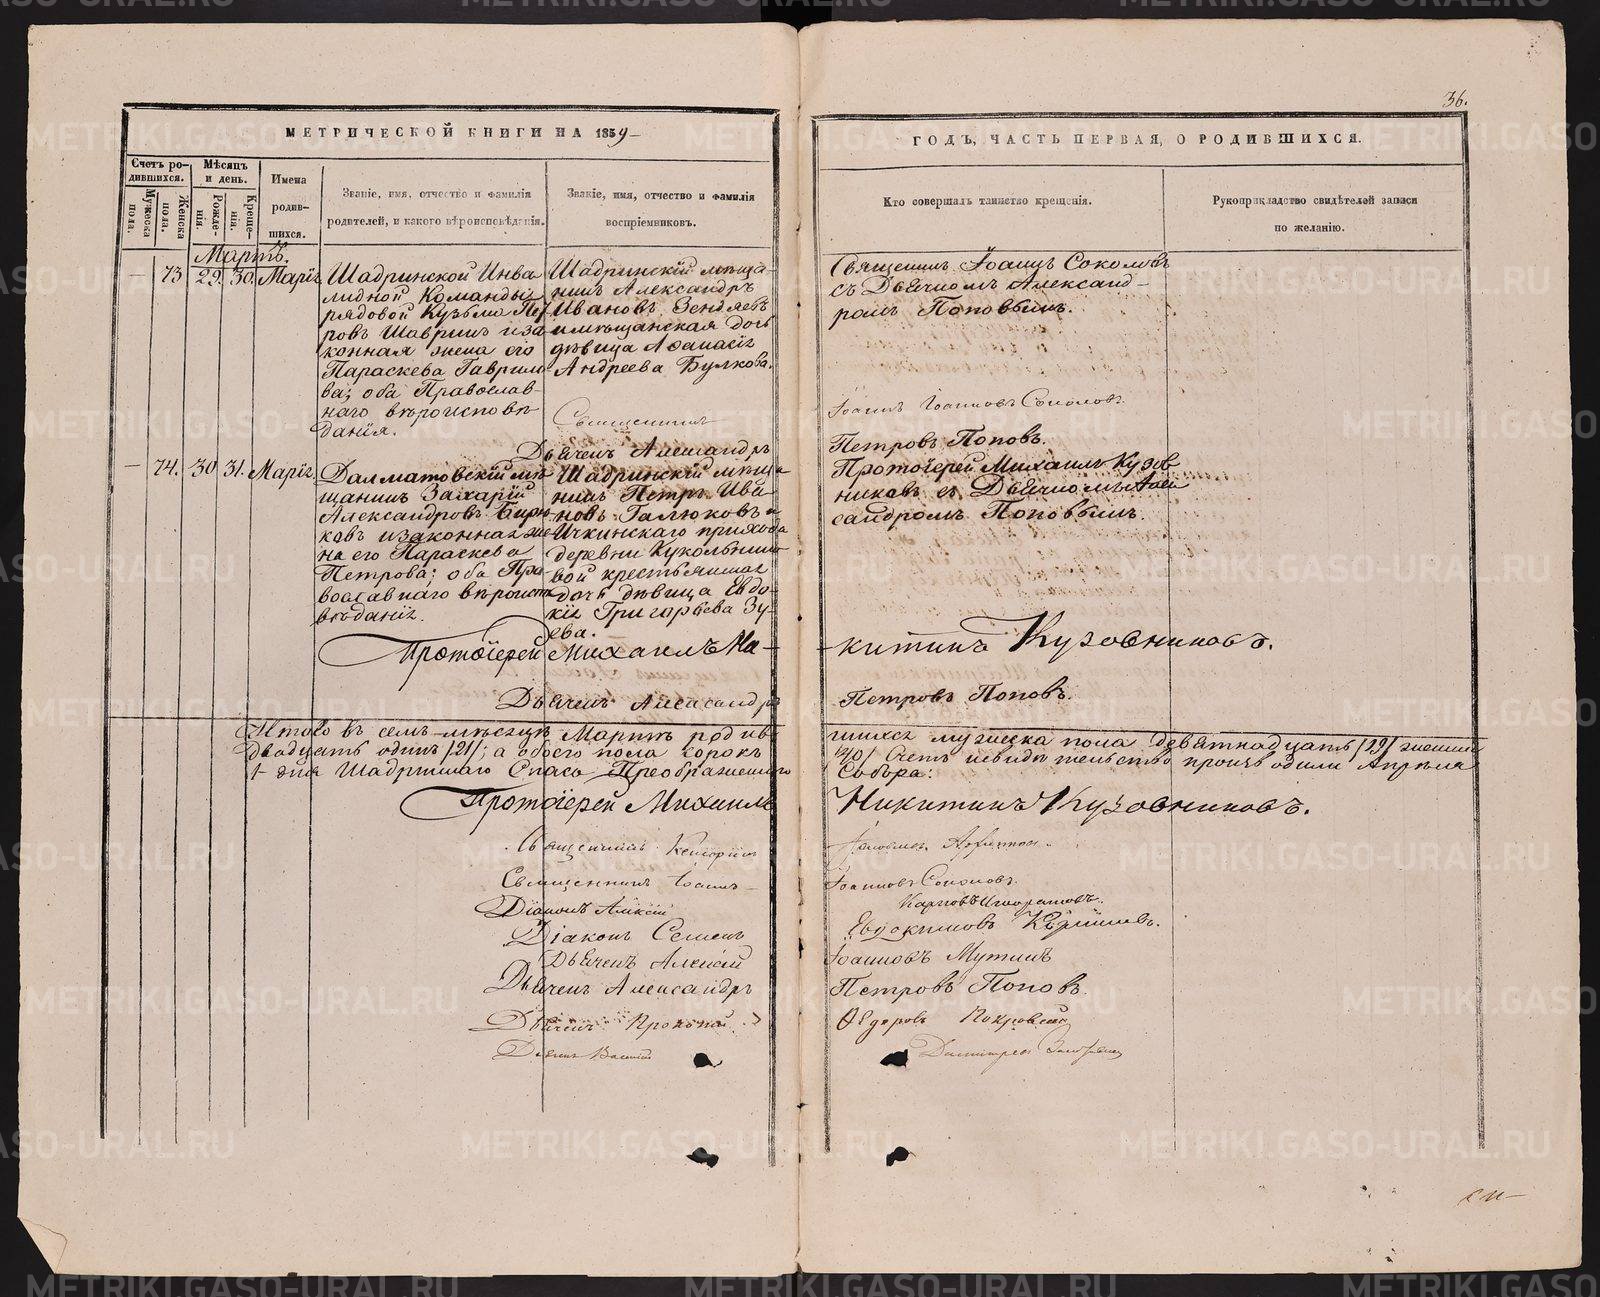 36.
МЕТРИЧЕСКОЙ КНИГИ НА 1859
ГОДЪ, ЧАСТЬ ПЕРВАЯ, О РОДИВШИХСЯ.
Счетъ ро-
дившихся.
Мужеска
пола.
Женска
пола.
Мѣсяцъ
и день.
Рожде-
нія.
Креще-
нія.
Имена
родив-
шихся.
Званіе, имя, отчество и фамилія
родителей, и какого вѣроисповѣданія.
Званіе, имя, отчество и фамилія
воспріемниковъ.
Кто совершалъ таинство крещенія.
Рукоприкладство свидѣтелей записи
по желанію.
Мартъ.
— 73 29. 30. Марія
Шадринской Инва
лидной Команды
рядовой Кузьма Пет
ровъ Шавринъ и за
конная жена его
Параскева Гаврило
ва; оба Православ-
наго вѣроисповѣ-
данія.
Шадринскій мѣща-
нинъ Александръ
Ивановъ Зенляевъ
и мѣщанская дочь
дѣвица Афанасія
Андреева Булкова.
Священникъ Іоаннъ Соколовъ
съ Дьячкомъ Александ-
ромъ Поповымъ.
Священникъ
Іоаннъ Іоанновъ Соколовъ
Дьячекъ Александръ
Петровъ Поповъ.
— 74. 30 31. Марія
Далматовскій мѣ-
щанинъ Захарій
Александровъ Бирю
ковъ и законная же-
на его Параскева
Петрова; оба Пра-
вославнаго вѣроиспо
вѣданія.
Шадринскій мѣща
нинъ Петръ Ива
новъ Галюковъ и
Ичкинскаго прихода
деревни Кукольнико
вой крестьянская
дочь дѣвица Евдо-
кія Григорьева Зу-
ева.
Протоіерей Михаилъ Кузов
никовъ съ Дьячкомъ Алек
сандромъ Поповымъ.
Протоіерей Михаилъ Ни-
-китинъ Кузовниковъ.
Дьячекъ Александръ
Петровъ Поповъ.
Итого въ семъ мѣсяцѣ Мартѣ родив
шихся мужеска пола девятнадцать /19/ женска
двадцать одинъ /21/; а обоего пола сорокъ
/40/ Счетъ и свидѣтельство производили Апрѣля
1 дня Шадринскаго Спасо-Преображенскаго
Собора:
Протоіерей Михаилъ
Никитинъ Кузовниковъ.
Священникъ
Священникъ Іоаннъ
Іоанновъ Соколовъ.
Діаконъ Алексій
Карповъ
Діаконъ Семенъ
Евдокимовъ
Дьячекъ Алексій
Іоанновъ Мутинъ
Дьячекъ Александръ
Петровъ Поповъ.
Дьячекъ Прокопій
Ѳедоровъ Покровскій
METRIKI.GASO-URAL.RU